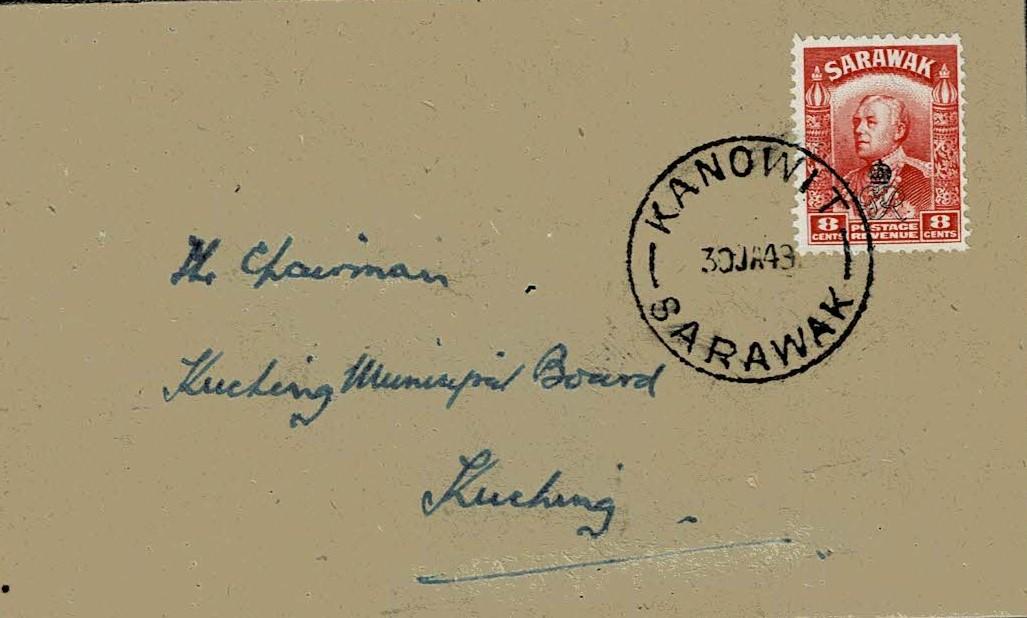 SARAWAK
8 CENTS POSTAGE REVENUE 8 CENTS
KANOWIT
30JA49
SARAWAK
The Chairman
Kuching Municipal Board
Kuching